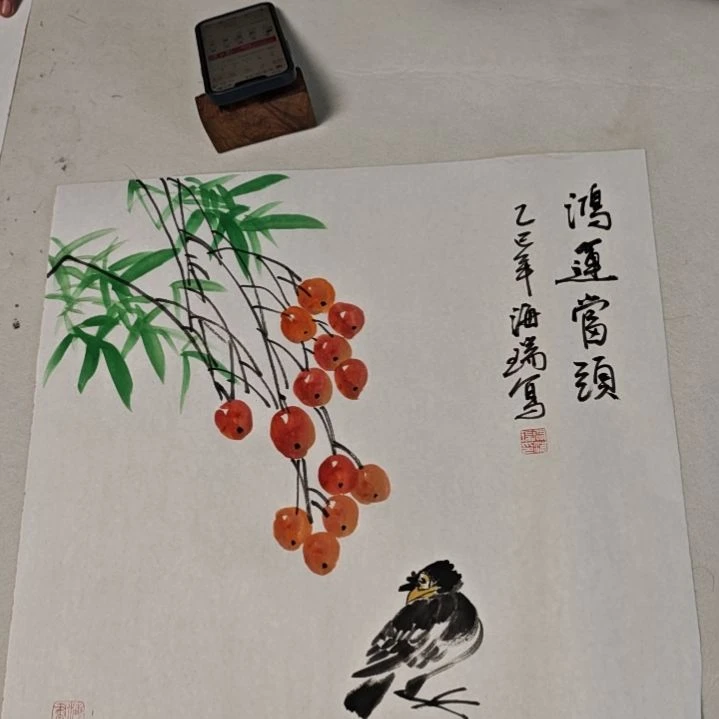 鴻運當頭
乙巳年海瑞寫